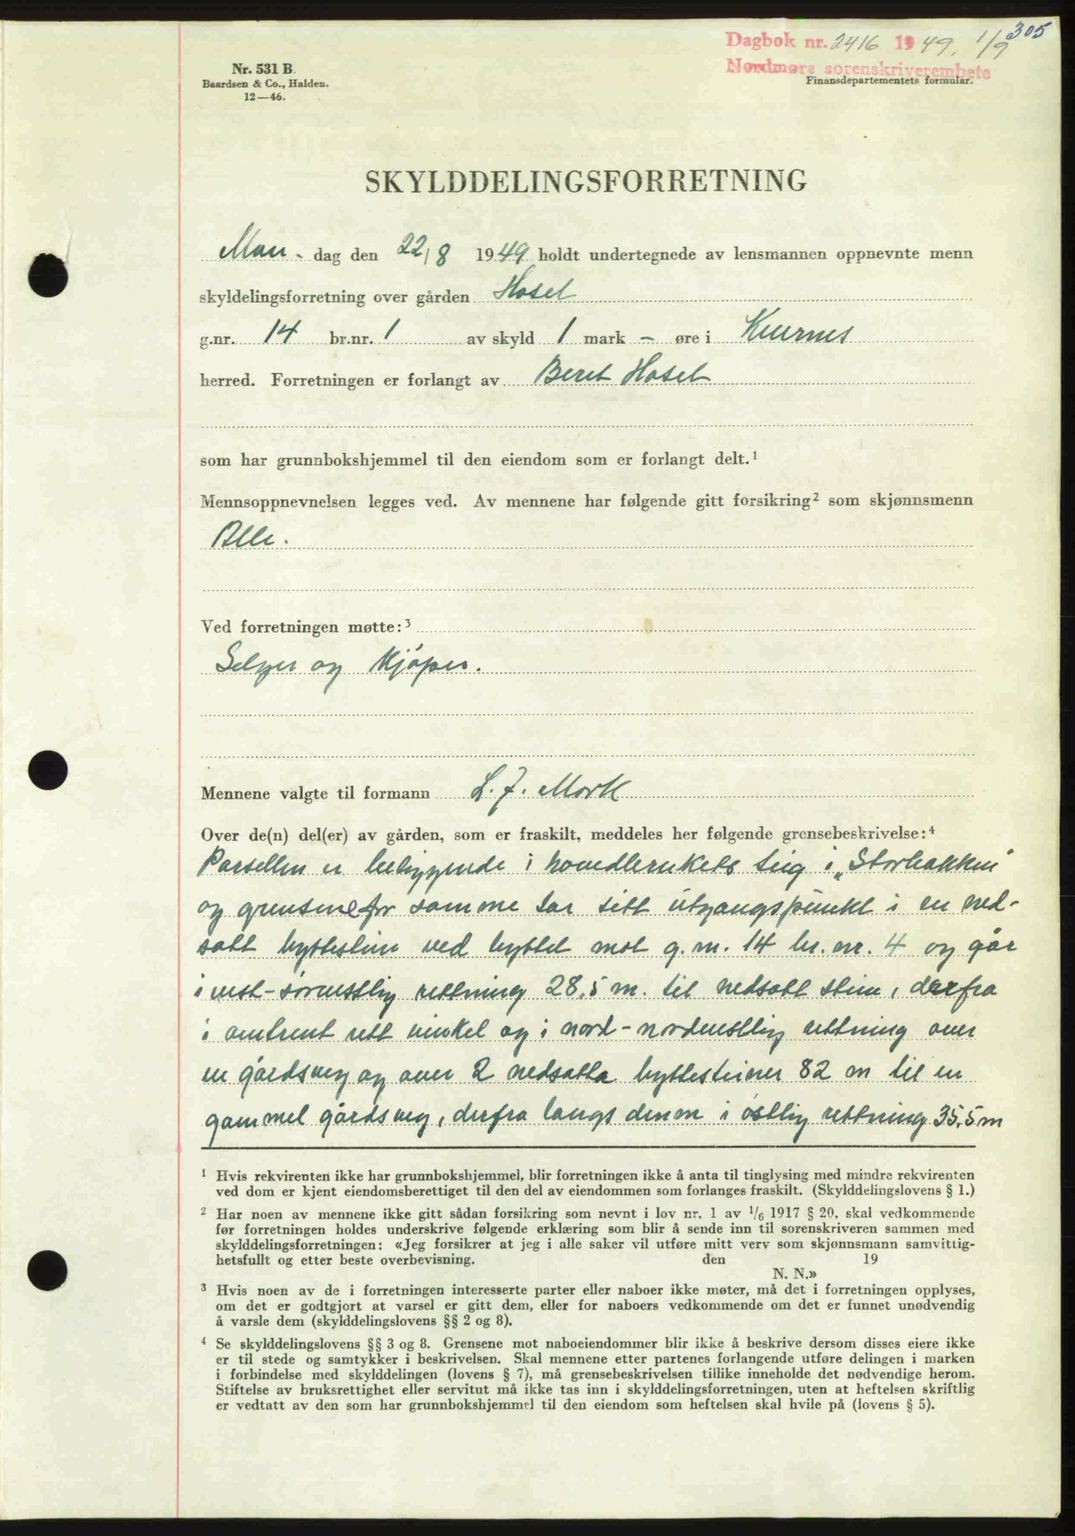 305
Dagbok nr. 2416 1949. 1/9
Nordmøre sorenskriverembete
Nr. 531 B
Baardsen & Co., Halden.
12—46.
Finansdepartementets formular.
SKYLDDELINGSFORRETNING
Man- dag den 22/8 1949 holdt undertegnede av lensmannen oppnevnte menn
skyldelingsforretning over gården Hasel
g.nr. 14 br.nr. 1 av skyld 1 mark — øre i
herred. Forretningen er forlangt av Beret Hasel
som har grunnbokshjemmel til den eiendom som er forlangt delt.¹
Mennsoppnevnelsen legges ved. Av mennene har følgende gitt forsikring² som skjønnsmenn
Alle.
Ved forretningen møtte:³
Selger og kjøper.
Mennene valgte til formann L. J. Mork
Over de(n) del(er) av gården, som er fraskilt, meddeles her følgende grensebeskrivelse:⁴
Parsellen er beliggende i hovedbrukets teig i „Storbakken"
og grensene for samme tar sitt utgangspunkt i en ned-
satt byttestein ved byttet mot g.nr. 14 br. nr. 4 og går
i vest-sørvestlig rettning 28,5 m. til nedsatt stein, derfra
i omtrent rett vinkel og i nord-nordvestlig rettning over
en gårdsveg og over 2 nedsatta byttesteiner 82 m til en
gammel gårdsveg, derfra langs denne i østlig rettning 35,5 m
¹ Hvis rekvirenten ikke har grunnbokshjemmel, blir forretningen ikke å anta til tinglysing med mindre rekvirenten
ved dom er kjent eiendomsberettiget til den del av eiendommen som forlanges fraskilt. (Skylddelingslovens § 1.)
² Har noen av mennene ikke gitt sådan forsikring som nevnt i lov nr. 1 av 1/6 1917 § 20, skal vedkommende
før forretningen holdes underskrive følgende erklæring som blir å sende inn til sorenskriveren sammen med
skylddelingsforretningen: «Jeg forsikrer at jeg i alle saker vil utføre mitt verv som skjønnsmann samvittig-
hetsfullt og etter beste overbevisning. den 19
N. N.»
³ Hvis noen av de i forretningen interesserte parter eller naboer ikke møter, må det i forretningen opplyses,
om det er godtgjort at varsel er gitt dem, eller for naboers vedkommende om det er funnet unødvendig
å varsle dem (skylddelingslovens §§ 2 og 8).
⁴ Se skylddelingslovens §§ 3 og 8. Grensene mot naboeiendommer blir ikke å beskrive dersom disses eiere ikke
er til stede og samtykker i beskrivelsen. Skal mennene etter partenes forlangende utføre delingen i marken
i forbindelse med skylddelingen (lovens § 7), må grensebeskrivelsen tillike inneholde det nødvendige herom.
Stiftelse av bruksrettighet eller servitut må ikke tas inn i skylddelingsforretningen, uten at heftelsen skriftlig
er vedtatt av den som har grunnbokshjemmel til den eiendom som heftelsen skal hvile på (lovens § 5).